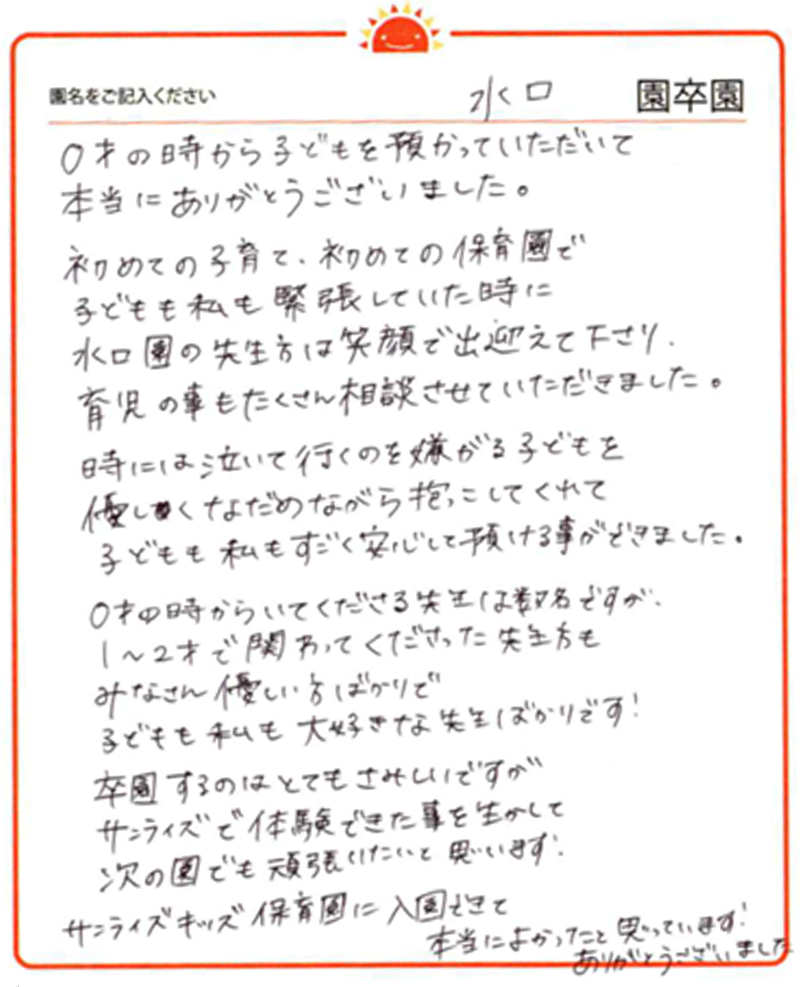 園名をご記入ください 水口 園卒園
0才の時から子どもを預かっていただいて
本当にありがとうございました。
初めての子育て、初めての保育園で
子どもも私も緊張していた時に
水口園の先生方は笑顔で出迎えて下さり、
育児の事もたくさん相談させていただきました。
時には泣いて行くのを嫌がる子どもを
優しくなだめながら抱っこしてくれて
子どもも私もすごく安心して預ける事ができました。
0才の時からいてくださる先生は数名ですが、
1〜2才で関わってくださった先生方も
みなさん優しい方ばかりで
子どもも私も大好きな先生ばかりです!
卒園するのはとてもさみしいですが
サンライズで体験できた事を生かして
次の園でも頑張りたいと思います!
サンライズキッズ保育園に入園できて
本当によかったと思っています!
ありがとうございました